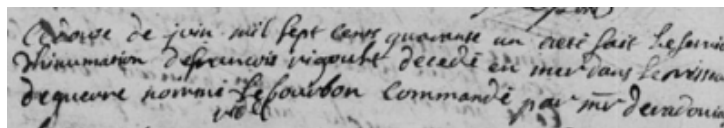 douse de juin mil sept cents quarante un a eté fait le servic
d'hinumation de francois rigoult decedé en mer dans le vaissea
de guerre nommé le bourbon commandé par mr de